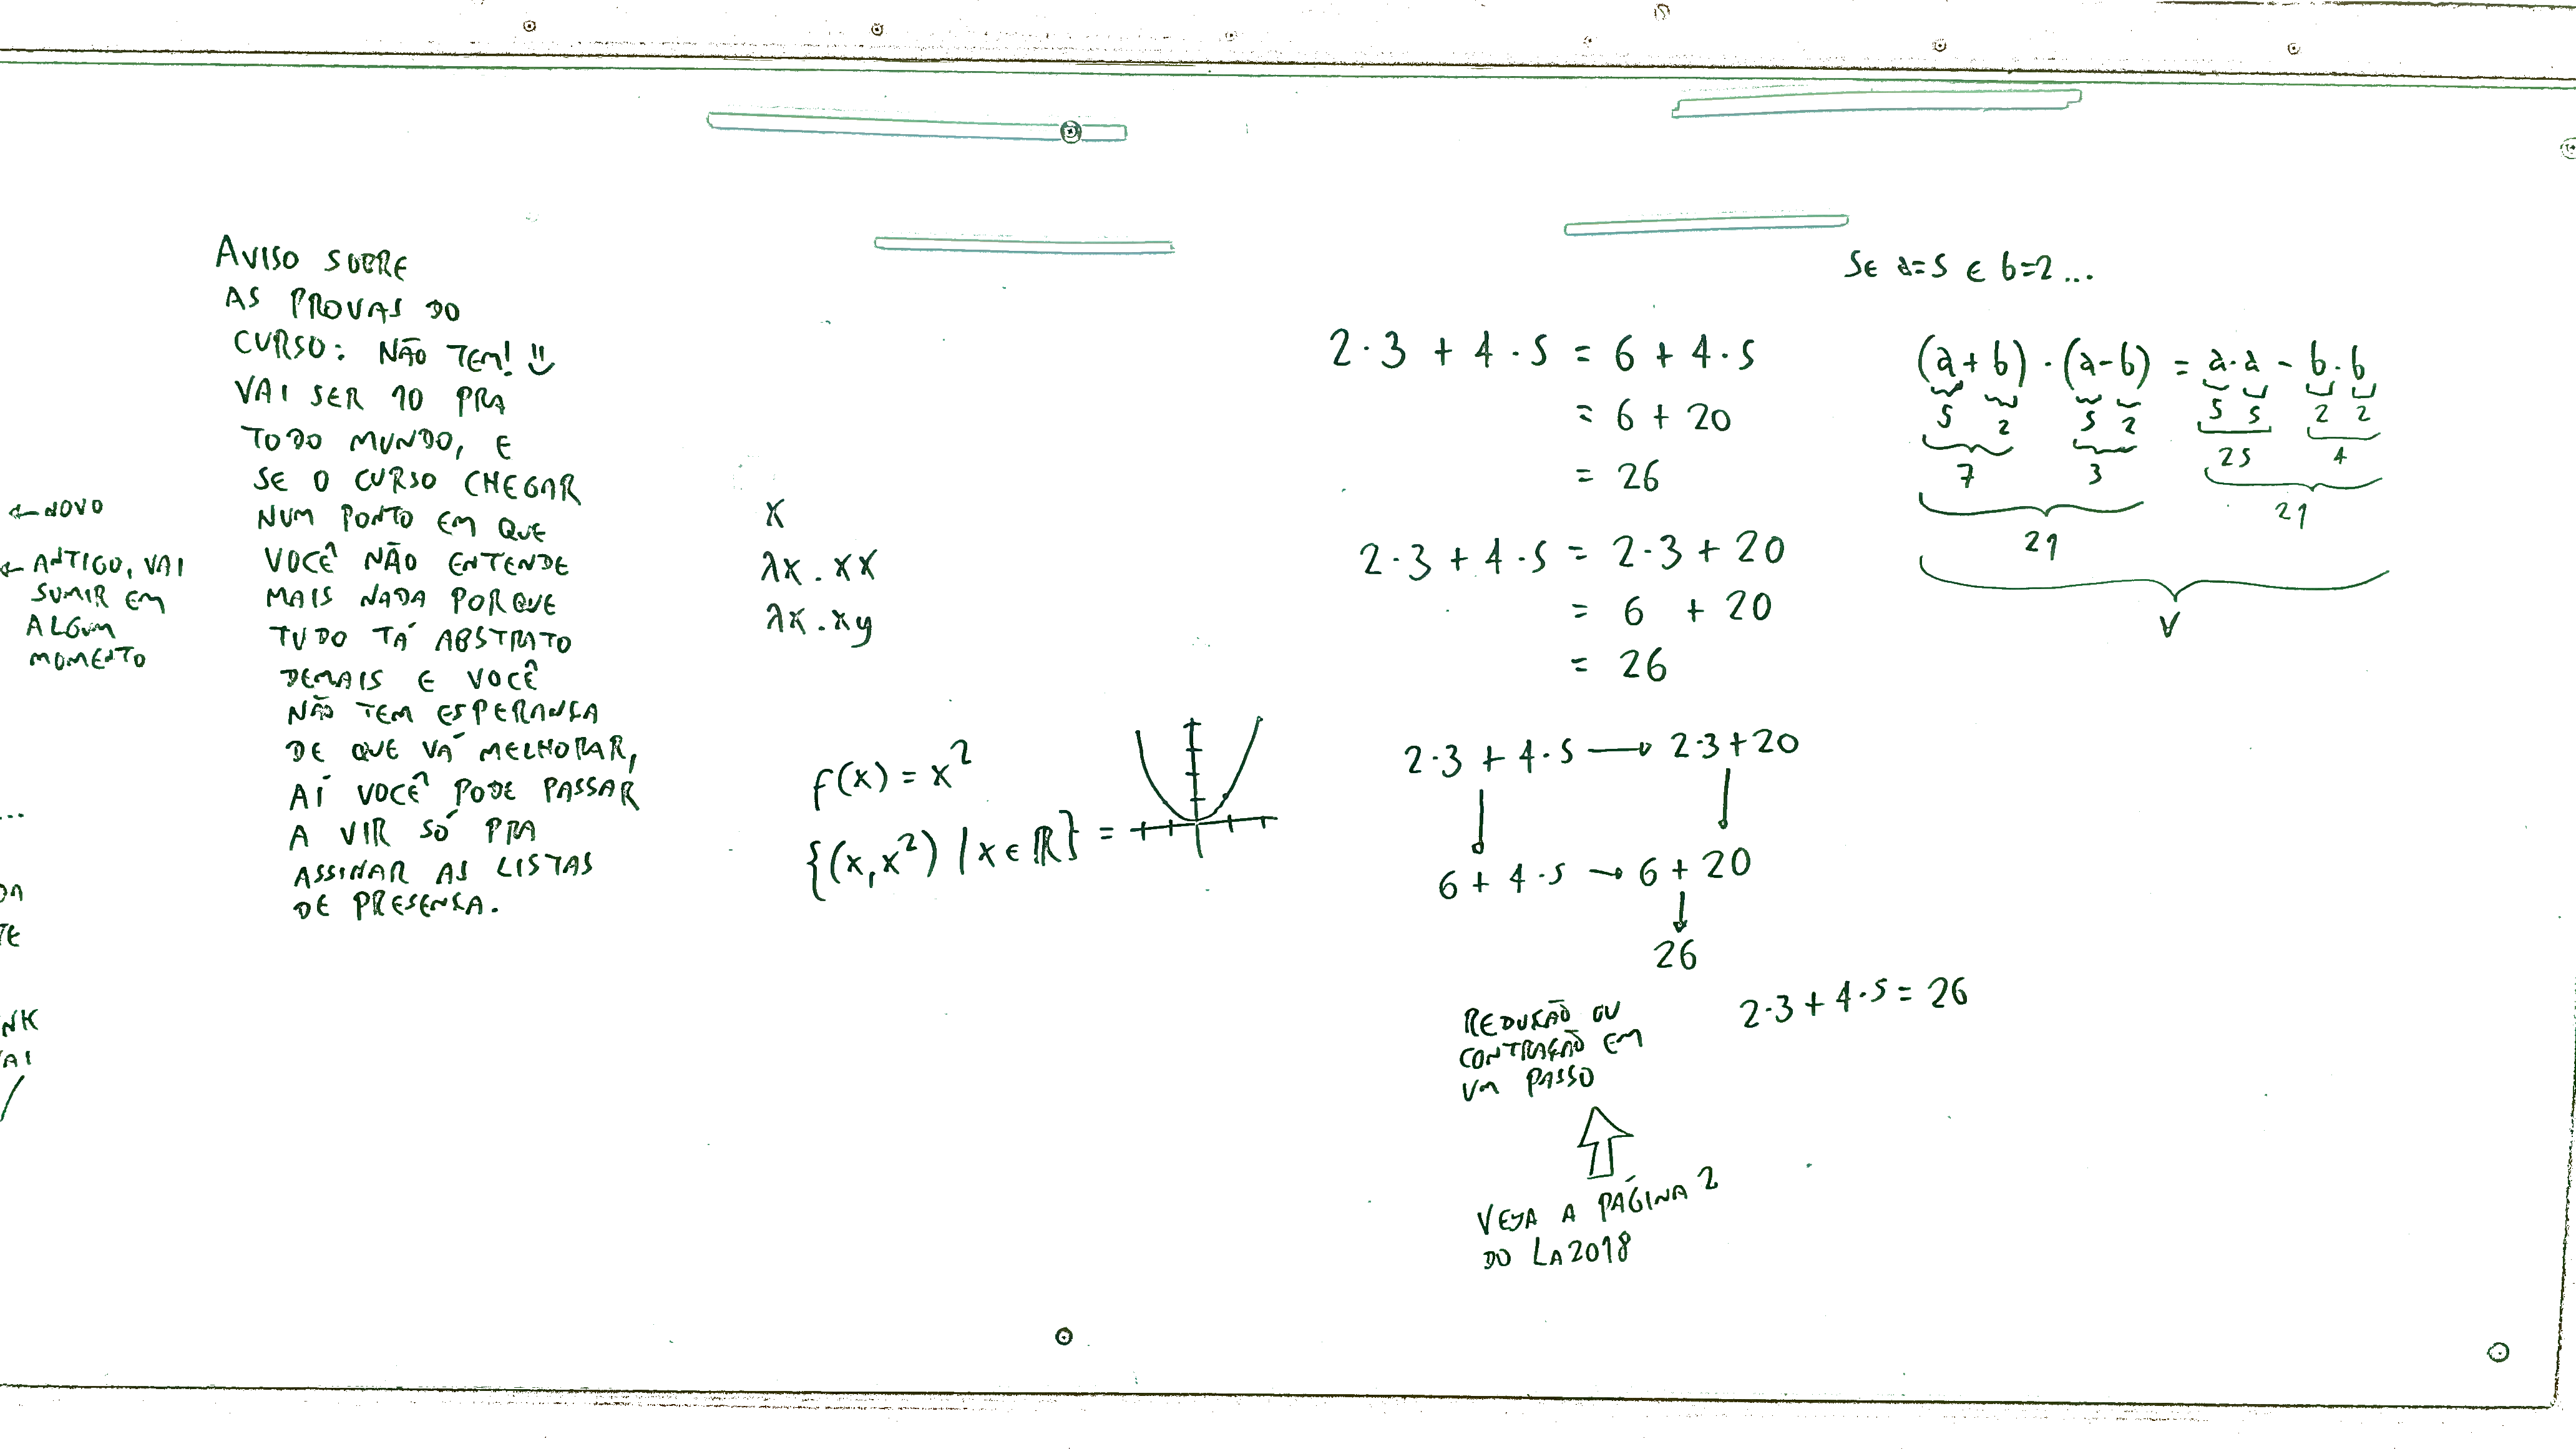 ← NOVO
← ANTIGO, VAI
SUMIR EM
ALGUM
MOMENTO
...
DA
TE
NK
VAI
AVISO SOBRE
AS PROVAS DO
CURSO: NÃO TEM!
VAI SER 10 PRA
TODO MUNDO, E
SE O CURSO CHEGAR
NUM PONTO EM QUE
VOCÊ NÃO ENTENDE
MAIS NADA PORQUE
TUDO TÁ ABSTRATO
DEMAIS E VOCÊ
NÃO TEM ESPERANÇA
DE QUE VÁ MELHORAR,
AÍ VOCÊ PODE PASSAR
A VIR SÓ PRA
ASSINAR AS LISTAS
DE PRESENÇA.
x
λx.xx
λx.xy
f(x) = x²
{(x,x²) | x ∈ ℝ} =
2·3 + 4·5 = 6 + 4·5
= 6 + 20
= 26
2·3 + 4·5 = 2·3 + 20
= 6 + 20
= 26
2·3 + 4·5 → 2·3+20
6 + 4·5 → 6 + 20
26
2·3 + 4·5 = 26
REDUÇÃO OU
CONTRAÇÃO EM
UM PASSO
VEJA A PÁGINA 2
DO LA2018
SE a=5 E b=2...
(a+b)·(a-b) = a·a - b·b
5 2 5 2 5 5 2 2
7 3 25 4
21 21
V